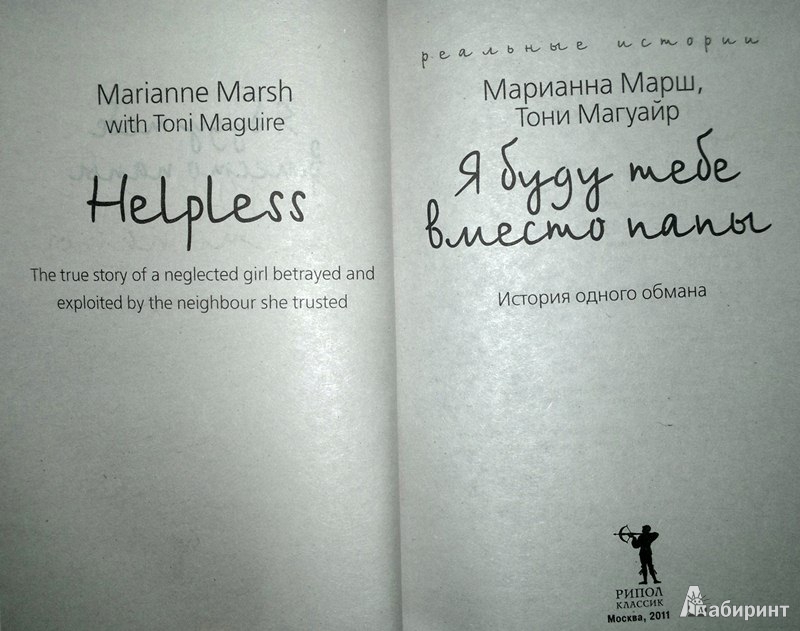 Marianne Marsh
with Toni Maguire
Helpless
The true story of a neglected girl betrayed and
exploited by the neighbour she trusted
реальные истории
Марианна Марш,
Тони Магуайр
Я буду тебе
вместо папы
История одного обмана
РИПОЛ
КЛАССИК
Москва, 2011
Лабиринт